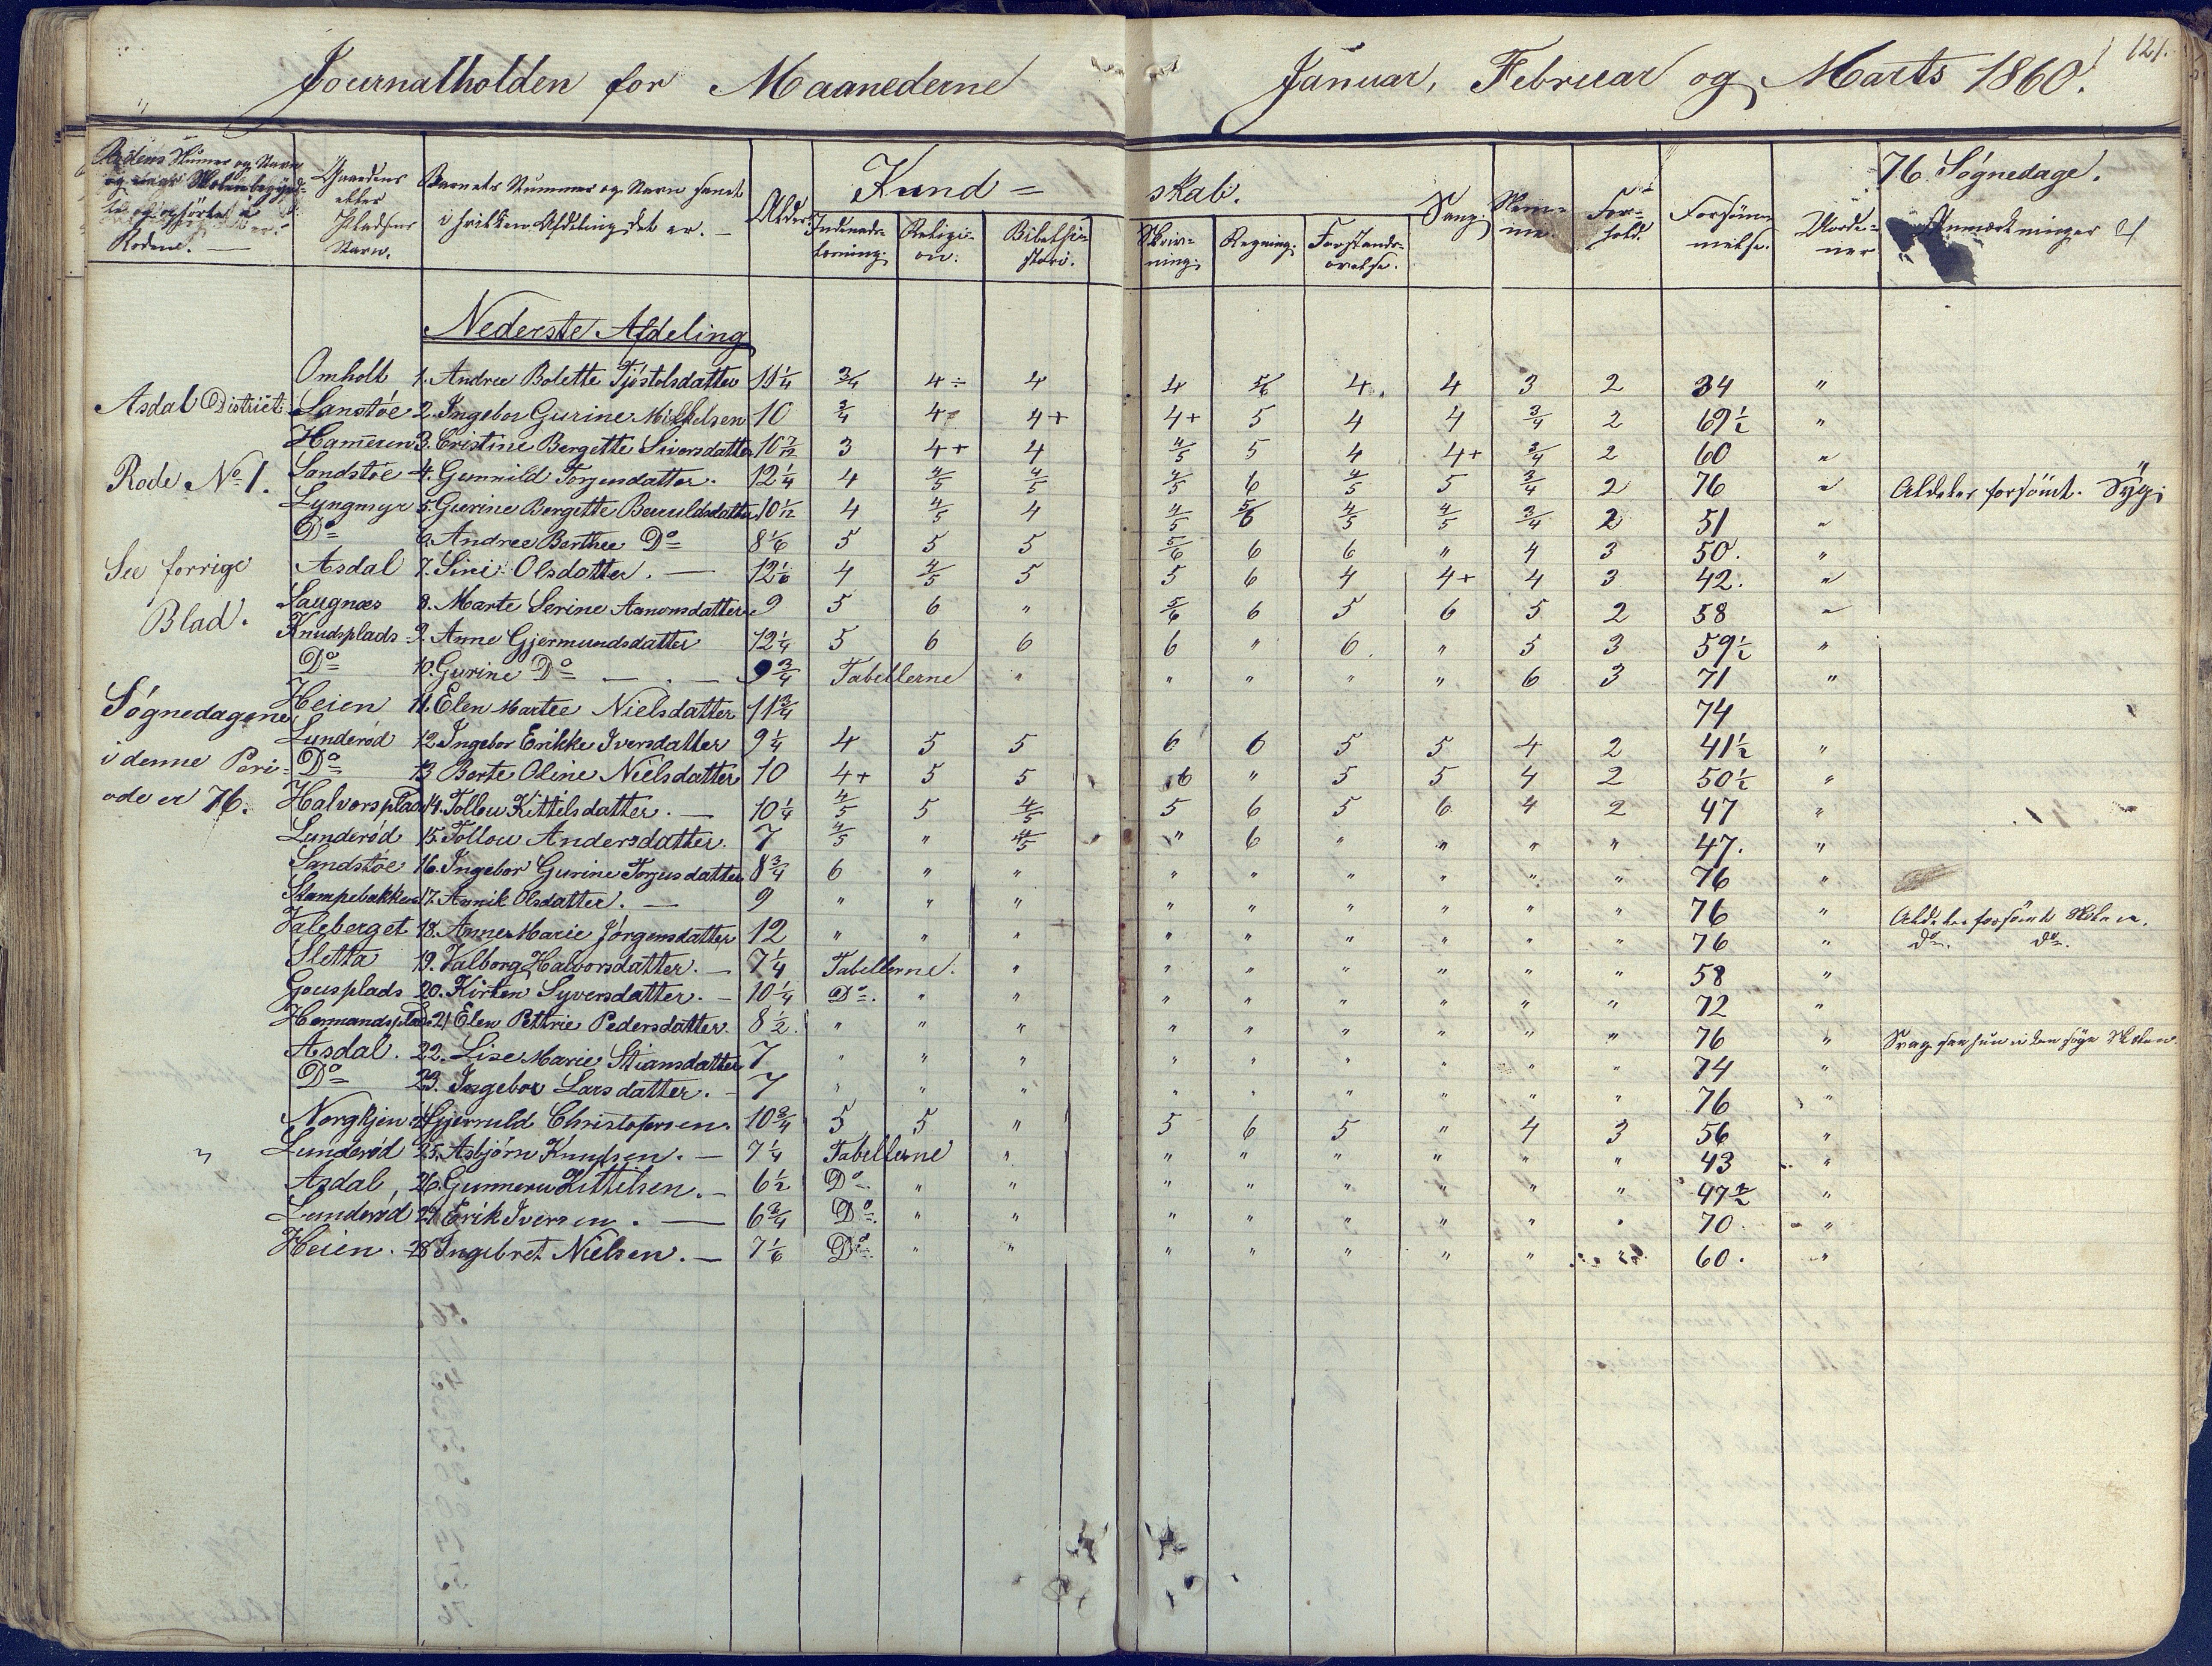 Journalholden for Maanederne Januar, Februar og Marts 1860.
121.
Rodens Numer og Navn
og naar Skolen begynd-
te og ophörte i
Rodene.
Gaardens
eller
Pladsens
Navn.
Barnets Nummer og Navn samt
i hvilken Afdeling det er.
Alder.
Kund = skab.
Indenads-
læsning.
Religi-
on.
Bibelhi-
storie.
Skriv-
ning.
Regning.
Forstands-
övelse.
Sang.
Nem-
me.
For-
hold.
Forsöm-
melse.
76 Sögnedage.
Anmærkninger
Nederste Afdeling
Omholt 1. Andrea Bolette Tjöstolsdatter 11 1/4 3/4 4 ÷ 4 4 5/6 4 4 3 2 34 "
Asdal District
Sanstöe 2. Ingebor Gurine Mikkelsen 10 3/4 4 4+ 4+ 5 4 4 3/4 2 69 1/2 "
Hammeren 3. Cristine Bergette Siversdatter 10 7/12 3 4+ 4 4/5 5 4 4+ 3/4 2 60 "
Rode No 1.
Sandstöe 4. Gunnild Torjusdatter. 12 1/4 4 4/5 4/5 4/5 6 4/5 5 3/4 2 76 " Aldeles forsömt. Syg.
Lyngmyr 5. Gurine Bergette Beruldsdatter 10 1/12 4 4/5 4 4/5 5/6 4/5 4/5 3/4 2 51 "
Do 6. Andrea Berthee Do 8 1/6 5 5 5 5/6 6 6 " 4 3 50. "
See forrige
Blad.
Asdal 7. Sini Olsdatter. 12 1/6 4 4/5 5 5 6 4 4+ 4 3 42. "
Saugnæs 8. Marte Serine Aanonsdatter 9 5 6 " 5/6 6 5 6 5 2 58 "
Knudsplads 9. Anne Gjermundsdatter 12 1/4 5 6 6 6 " 6. " 5 3 59 1/2 "
Do 10. Gurine Do 9 3/4 Tabellerne " " " " " 6 3 71 "
Sögnedagene
i denne Peri-
ode er 76.
Heien 11. Elen Martee Nielsdatter 11 3/4 74
Lunderöd 12. Ingebor Erikke Iversdatter 9 1/4 4 5 5 6 6 5 5 4 2 41 1/2 "
Do 13 Berte Oline Nielsdatter 10 4+ 5 5 6 " 5 5 4 2 50 1/2 "
Halvorsplads 14. Tollou Kittilsdatter. 10 1/4 4/5 5 4/5 5 6 5 6 4 2 47 "
Lunderöd 15. Tollou Andersdatter. 7 4/5 " 4/5 " 6 " " " " 47. "
Sandstöe 16. Ingebor Gurine Torjusdatter 8 3/4 6 " " " " " " " " 76 "
Stampebakken 17. Annik Olsdatter. 9 " " " " " " " " " 76 " Aldeles forsömt Skolen.
Valeberget 18. Anne Marie Jörgensdatter 12 " " " " " " " " " 76 " do. do.
Sletta 19. Valborg Halvorsdatter. 7 1/4 Tabellerne. " " " " " " " 58 "
Gousplads 20. Kirsten Syversdatter. 10 1/4 Do. " " " " " " " " 72 "
Hermandsplads 21 Elen Pettrie Pedersdatter. 8 1/2. " " " " " " " " " 76 " Svag saa hun ei kan söge Skolen
Asdal. 22. Lise Marie Stiansdatter 7 " " " " " " " " " 74 "
Do 23. Ingebor Larsdatter. 7 " " " " " " " " " 76 "
Norgkjen 24 Gjeruld Christofersen 10 3/4 5 5 " 5 6 5 " 4 3 56 "
Lunderöd 25. Asbjörn Knudsen. 7 1/4 Tabellerne " " " " " " " 43 "
Asdal, 26. Gunneru Kittilsen. 6 1/2 Do " " " " " " " " 47 1/2 "
Lunderöd 27 Erik Iversen. 6 3/4 Do. " " " " " " " " 70. "
Heien. 28 Ingebret Nielsen. 7 1/6 Do. " " " " " " " 60. "